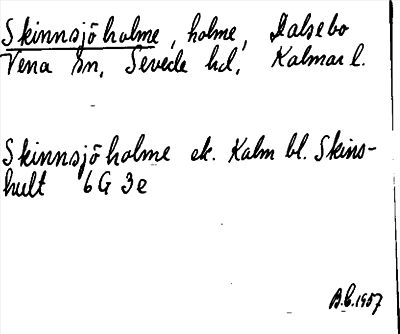 Skinnsjöholme, holme, Dalsebo
Vena sn, Sevede hd, Kalmar l.
Skinnsjöholme ek. Kalm bl. Skins-
hult 6G 3e
B.b. 1957